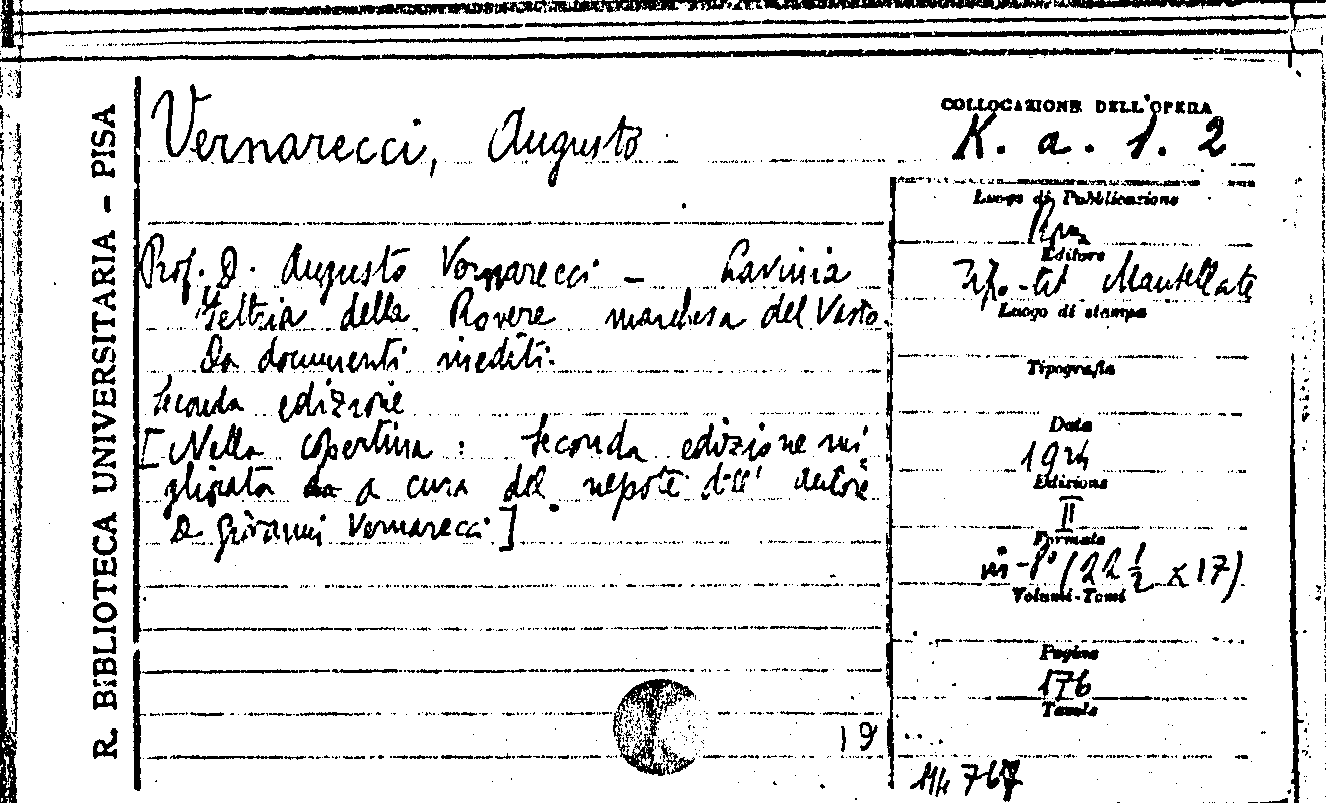 R. BIBLIOTECA UNIVERSITARIA - PISA
Vernarecci, Augusto
Prof. D. Augusto Vernarecci - Lavinia
Feltria della Rovere marchesa del Vasto.
Da documenti inediti.
Seconda edizione
[Nella copertina: Seconda edizione mi
gliorata a cura del nepote dell' autore
D Giovanni Vernarecci]
19
COLLOCAZIONE DELL'OPERA
K. a. 1. 2
Luogo di Pubblicazione
Roma
Editore
Tipo-tit Mantellate
Luogo di stampa
Tipografia
Data
1924
Edizione
II
Formato
in-8° (22 1/2 x 17)
Volumi-Tomi
Pagine
176
Tavole
767